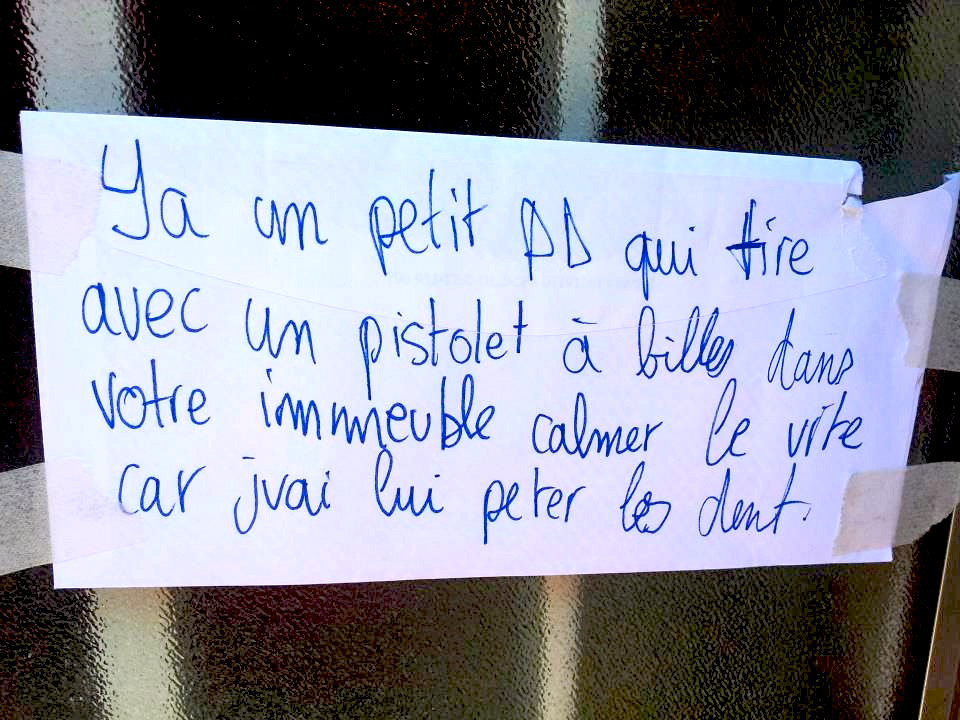 Ya un petit PD qui tire
avec un pistolet à billes dans
votre immeuble calmer le vite
car jvai lui peter les dent.